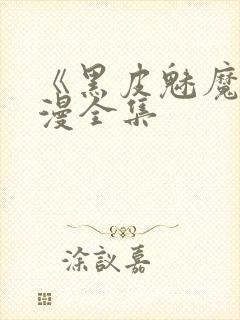 《黑皮魅魔
漫全集
涂議嘉